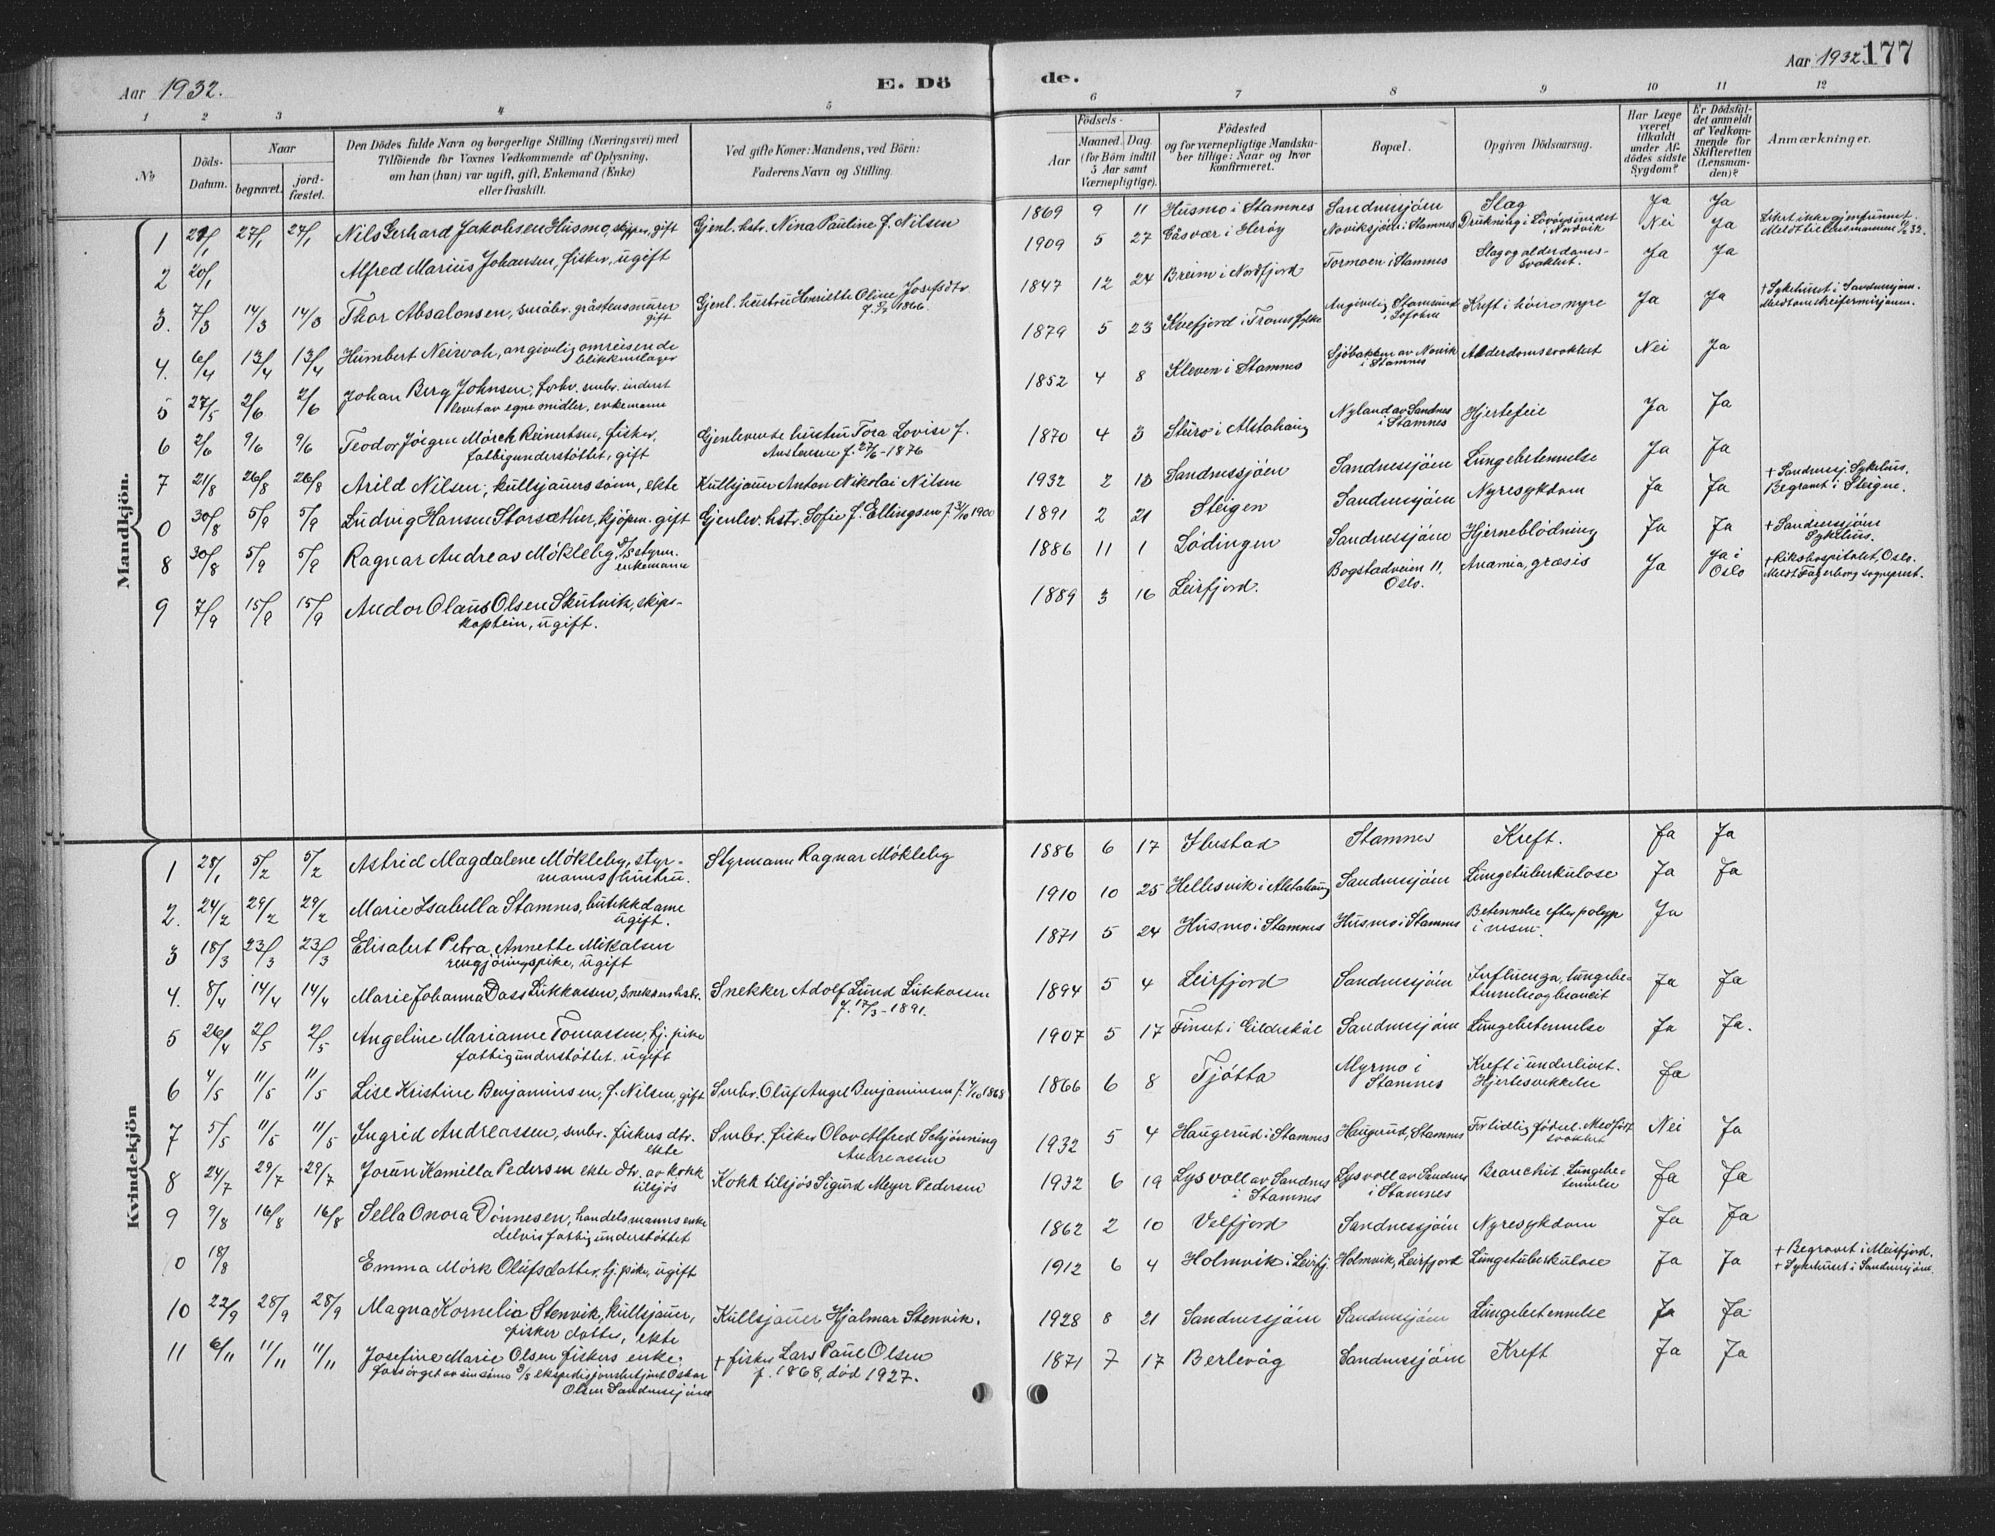 Aar 1932.
E. Dö
de.
Aar 1932. 177
1 2 3 4 5
6 7 8 9 10 11 12
No
Döds-
Datum.
Naar
begravet.
jord-
fæstet.
Den Dödes fulde Navn og borgerlige Stilling (Næringsvei) med
Tilföiende for Voxnes Vedkommende af Oplysning,
om han (hun) var ugift, gift, Enkemand (Enke)
eller fraskilt.
Ved gifte Koner: Mandens, ved Börn:
Faderens Navn og Stilling.
Födsels-
Aar
Maaned. Dag
(for Börn indtil
5 Aar samt
Værnepligtige).
Födested
og for værnepligtige Mandska-
ber tillige: Naar og hvor
konfirmeret.
Bopæl.
Opgiven Dödsaarsag.
Har Læge
været
tilkaldt
under Af-
dödes sidste
Sygdom?
Er Dödsfal-
det anmeldt
af Vedkom-
mende for
Skifteretten
(Lensman-
den)?
Anmærkninger.
Mandkjön.
1 21/1 27/1 27/1 Nils Gerhard Jakobsen Husmo, skipper, gift Gjenl. hstr. Nina Pauline f. Nilsen
1869 9 11 Husmo i Stamnes Sandnessjøen Slag Ja Ja
2 20/1 Alfred Marius Johansen, fisker, ugift
1909 5 27 Gåsvær i Herøy Noviksjøen i Stamnes Drukning i Nei Ja Liket ikke gjenfunnet.
3. 7/3 14/3 14/3 Thor Absalonsen, småbr. gråstensmurer
gift
Gjenl. hustru Henriette Oline Josefsdtr.
1847 12 24 Breim i Nordfjord Tormoen i Stamnes Slag og alderdoms-
svakhet. Ja Ja
4. 6/4 13/4 13/4 Humbert Neiwah, angivelig omreisende
blikkenslager
1879 5 23 Kvefjord i Troms fylke Angivelig Stamsund
i Lofoten Kreft i høire nyre Ja Ja + Sykehuset i Sandnessjøen.
5 27/5 2/6 2/6 Johan Berg Johnsen, forhv. smbr. inderst
levet av egne midler, enkemann
1852 4 8 Kleven i Stamnes Sjøbakken av Novik
i Stamnes Alderdomssvakhet Nei Ja
6 2/6 9/6 9/6 Teodor Jørgen Mörch Reinertsen, fisker,
fattigunderstøttet, gift
Gjenlevende hustru Tora Lovise f.
1870 4 3 Stüro i Alstahaug Nyland av Sandnes
i Stamnes Hjertefeil Ja Ja
7 21/8 26/8 26/8 Arild Nilsen, kullsjauers sønn, ekte Kullsjauer Anton Nikolai Nilsen
1932 2 Sandnessjøen Sandnessjøen Lungebetennelse Ja Ja
0 30/8 5/9 5/9 Ludvig Hansen Storsæther, kjøpm. gift Gjenlev. hstr. Sofie f. Ellingsen f. 3/10 1900
1891 2 21 Steigen Sandnessjøen Nyresykdom Ja Ja + Sandnessj. Sykehus.
Begravet i Steigen.
8 30/8 5/9 5/9 Ragnar Andreas Møkleby, D/S styrm.
enkemann
1886 11 1 Lødingen Sandnessjøen Hjerneblødning Ja Ja + Sandnessjøen
Sykehus.
9 7/9 15/9 15/9 Andor Olaus Olsen Skutvik, skips-
kaptein, ugift.
1889 3 16 Leirfjord. Bogstadveien 11,
Oslo. Anæmia, græsis Ja Ja i
Oslo + Rikshospitalet, Oslo.
Meldt Fagerborg sogneprest.
Kvindekjön
1 28/1 5/2 5/2 Astrid Magdalene Møkleby, styr-
manns hustru. Styrmann Ragnar Møkleby
1886 6 17 Hustad Stamnes Kreft. Ja Ja
2. 24/2 29/2 29/2 Marie Isabella Stamnes, butikkdame
ugift.
1910 10 25 Hellesvik i Alstahaug Sandnessjøen Lungetuberkulose Ja Ja
3 18/3 23/3 23/3 Elisabet Petra Annette Mikalsen
rengjøringspike, ugift
1871 5 24 Husmo i Stamnes Husmo i Stamnes Betennelse efter polypp
i nesen. Ja
4. 8/4 14/4 14/4 Marie Johanna Dass Lukkassen, snekkers hstr. Snekker Adolf Lund Lukkassen
f. 17/3-1891.
1894 5 4 Leirfjord Sandnessjøen Influenza, lungebe-
tennelse og broncit Ja Ja
5 26/4 2/5 2/5 Angeline Marianne Tomassen, tj. pike
fattigunderstøttet, ugift
1907 5 17 Finset i Gildeskål Sandnessjøen Lungebetennelse Ja Ja.
6 4/5 11/5 11/5 Lise Kristine Benjaminsen, f. Nilsen, gift Smbr. Oluf Angel Benjaminsen f. 7/10 1868
1866 6 8 Tjøtta Myrmo i
Stamnes Kreft i underlivet.
Hjertesvekkelse Ja
7 5/5 11/5 11/5 Ingrid Andreassen, smbr. fiskers dtr.
ekte Smbr. fisker Olav Alfred Schjønning
Andreassen
1932 5 4 Haugerud i Stamnes Haugerud, Stamnes For tidlig födsel. Medfødt
svakhet Nei Ja
8 24/7 29/7 29/7 Jorun Kamilla Pedersen ekte dtr. av kokk
tilsjøs Kokk tilsjøs Sigurd Meyer Pedersen
1932 6 19 Lysvoll av Sandnes
i Stamnes Lysvoll av Sandnes
i Stamnes Bronchit. Lungebe-
tennelse Ja Ja
9 9/8 16/8 16/8 Sella Onora Dønnesen, handelsmanns enke
delvis fattigunderstøttet
1862 2 10 Velfjord Sandnessjøen Nyresykdom Ja Ja
0 18/8 Emma Mörk Olufsdatter, tj. pike, ugift
1912 6 4 Holmvik i Leirfj. Holmvik, Leirfjord Lungetuberkulose Ja Ja + Begravet i Meisfjord.
+ Sykehuset i Sandnessjøen.
10 22/9 28/9 28/9 Magna Kornelia Stenvik, kullsjauer,
fisker datter, ekte Kullsjauer Hjalmar Stenvik.
1928 8 21 Sandnessjøen Sandnessjøen Lungebetennelse Ja Ja
11 6/11 11/11 11/11 Josefine Marie Olsen fiskers enke.
forsørget av sin sønn D/S ekspedisjonsbetjent Oskar
Olsen Sandnessjøen
+ fisker Lars Paul Olsen
f. 1868, død 1927.
1871 7 17 Berlevåg Sandnessjøen Kreft Ja Ja